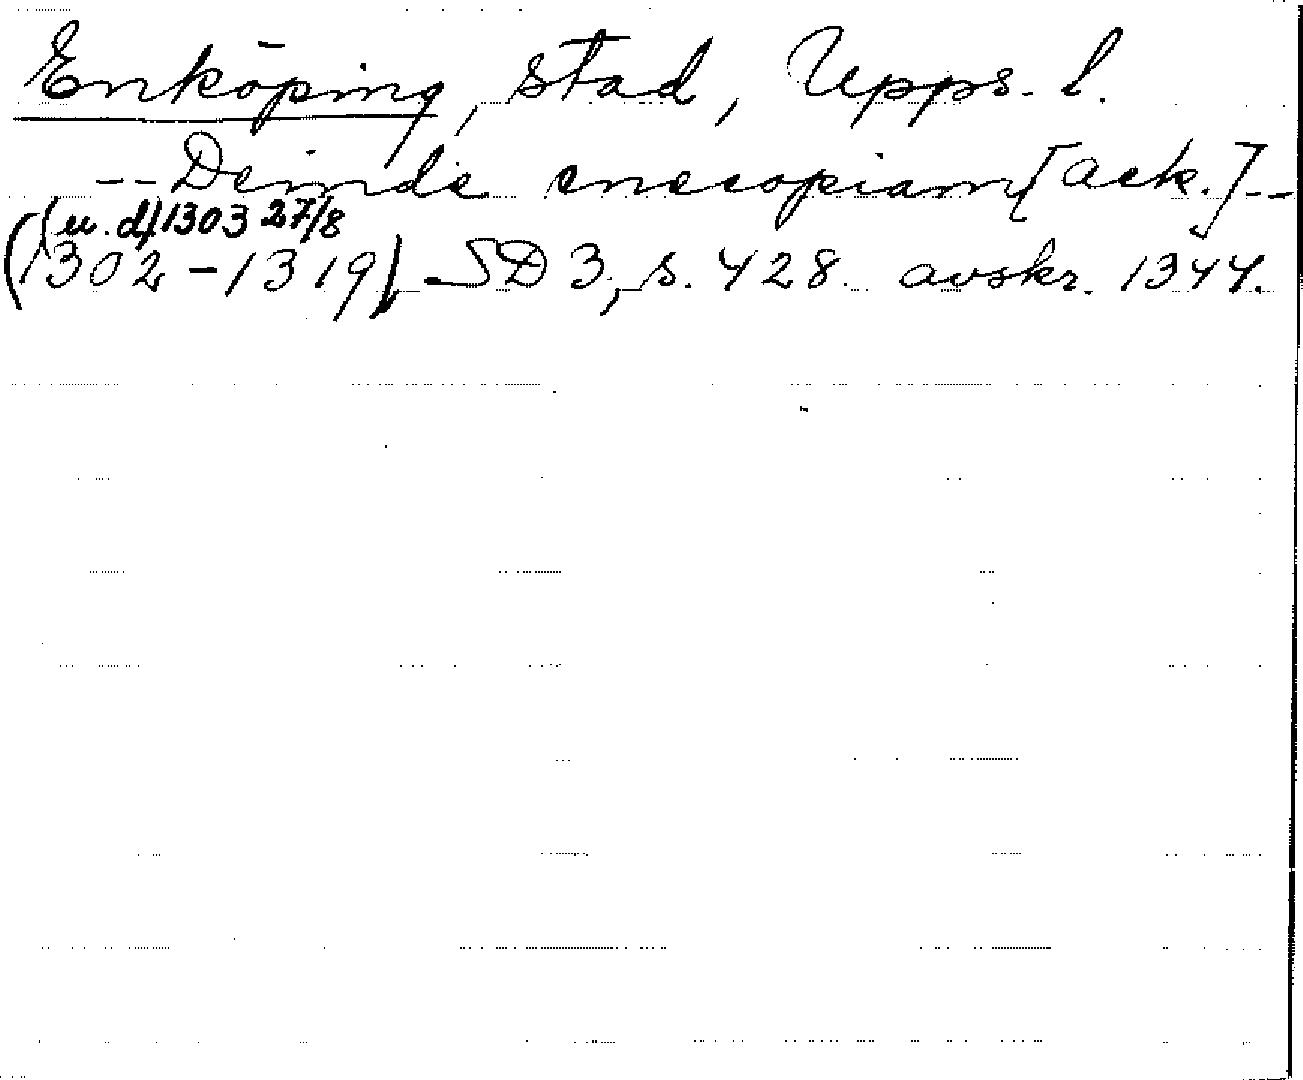 Enköping, stad, Upps. l.
-- Deinde enecopiam [ack.] --
(u. d) 1303 27/8
(1302-1319) SD 3, s. 428. avskr. 1344.